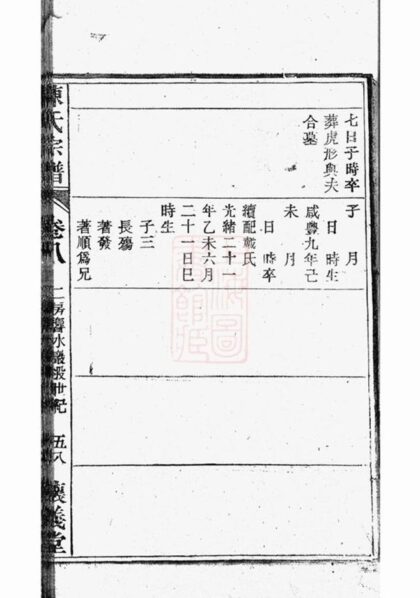 七日子時卒
葬虎形與夫
合墓
子 月
日 時生
咸豐九年己
未 月
日 時卒
續配戴氏
光緒二十一
年乙未六月
二十一日巳
時生
子三
長殤
著發
著順為兄
陳氏宗譜
卷八
二房響水巖股世紀
五八
懷義堂